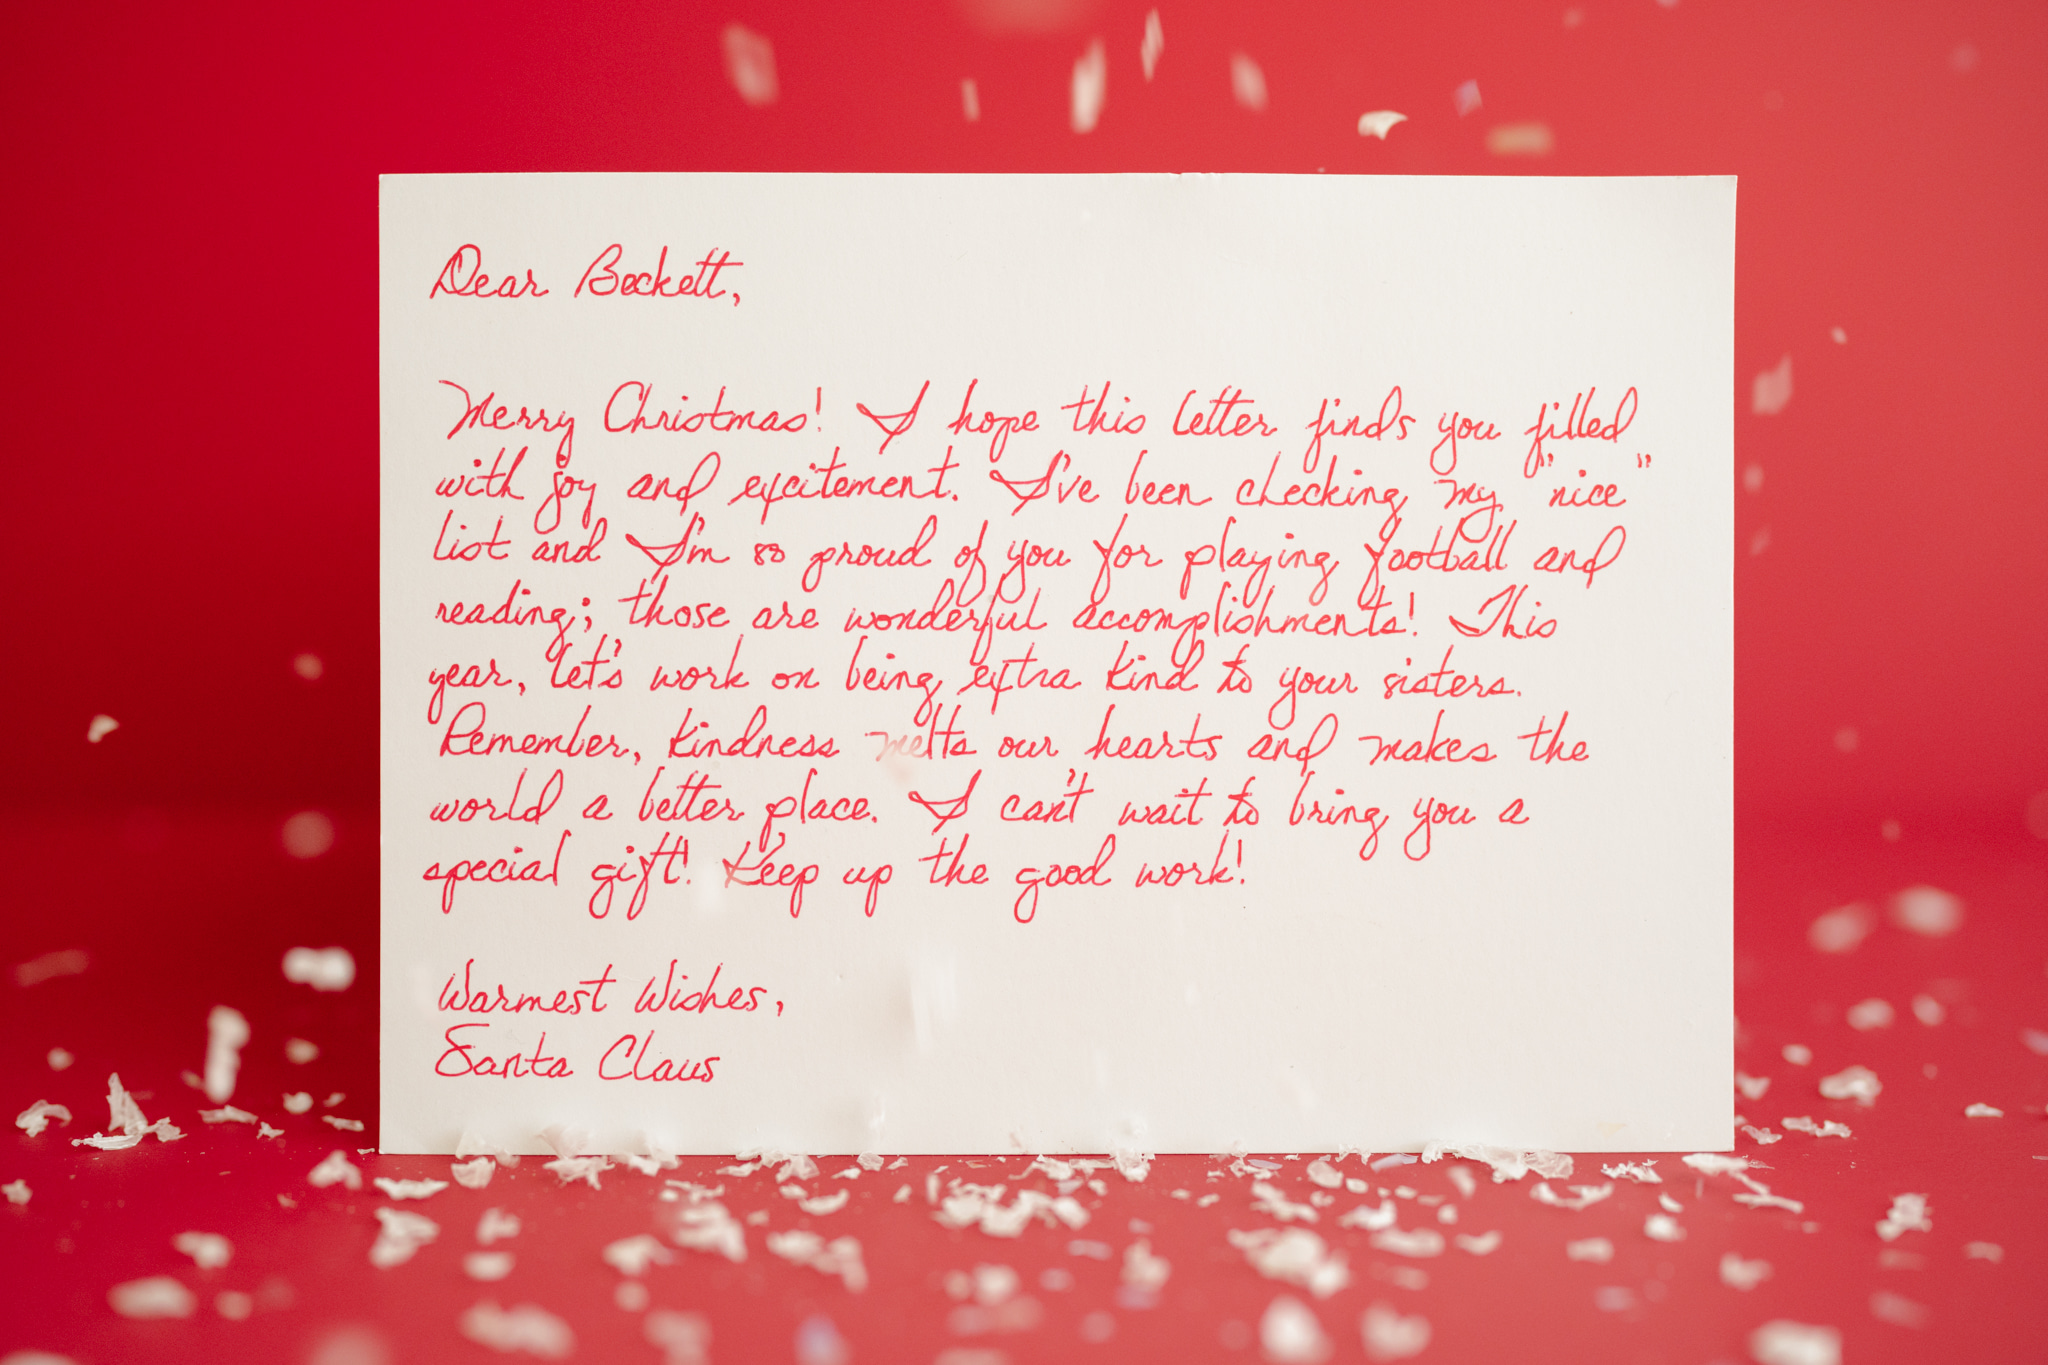 Dear Beckett,
Merry Christmas! I hope this letter finds you filled
with joy and excitement. I've been checking my "nice"
list and I'm so proud of you for playing football and
reading; those are wonderful accomplishments! This
year, let's work on being extra kind to your sisters.
Remember, kindness melts our hearts and makes the
world a better place. I can't wait to bring you a
special gift! Keep up the good work!
Warmest Wishes,
Santa Claus